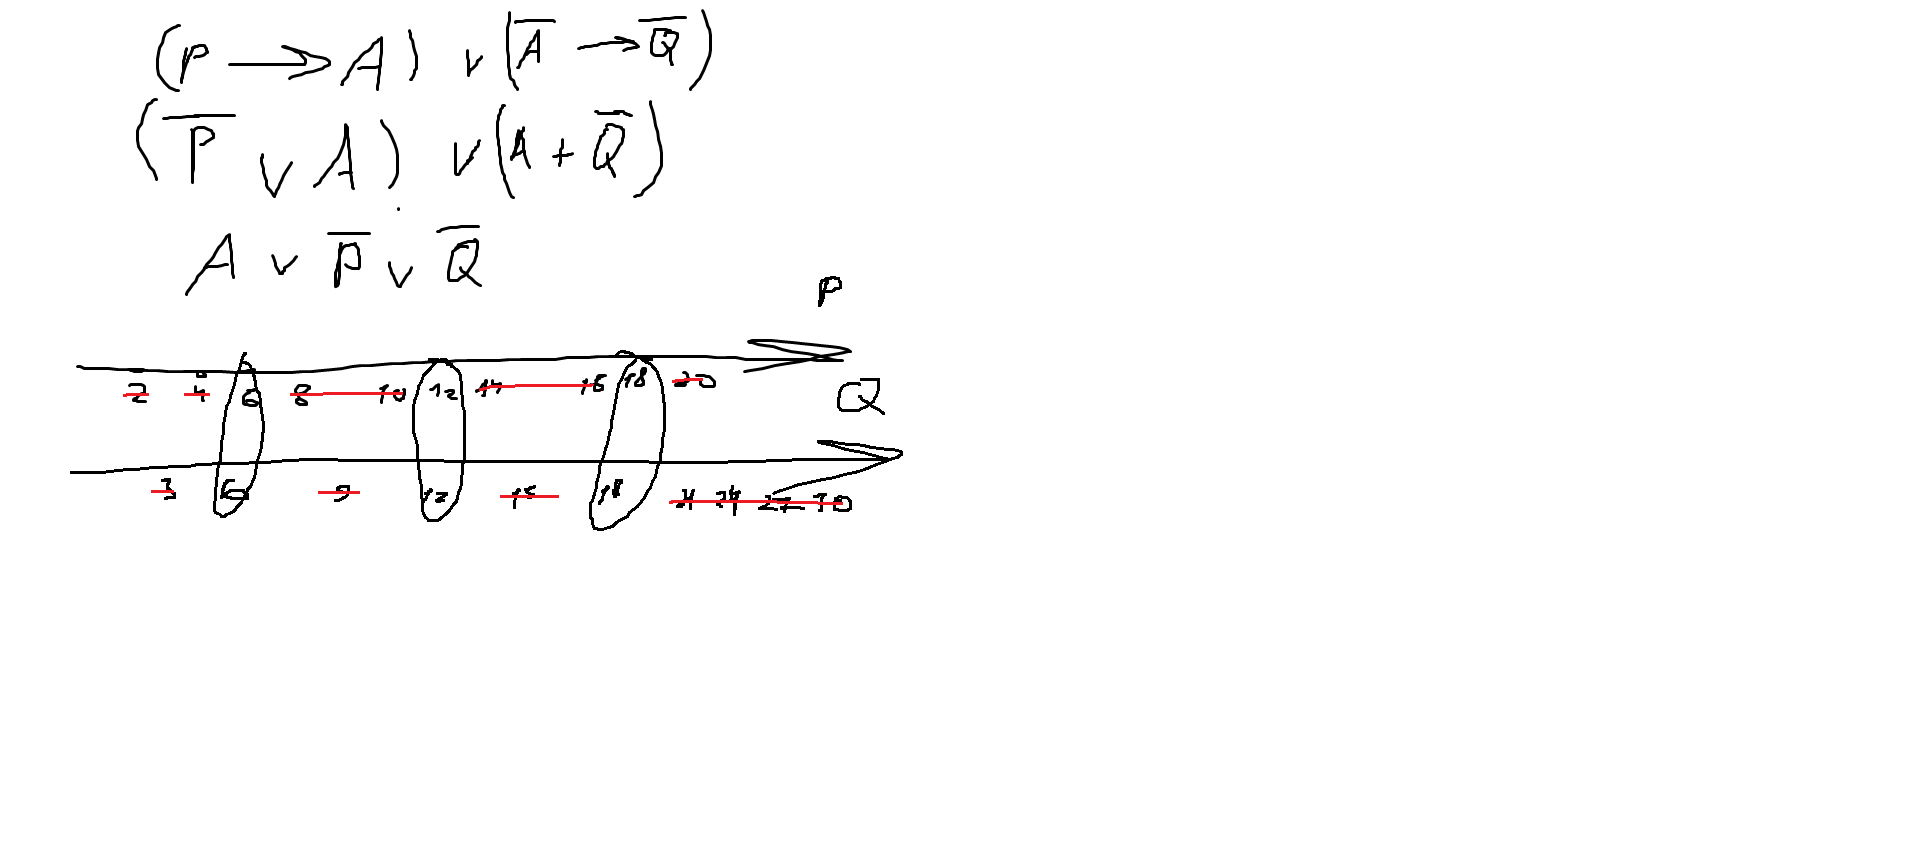 (P → A) ∨ (A̅ → Q̅)
(P̅ ∨ A) ∨ (A + Q̅)
A ∨ P̅ ∨ Q̅
P
2 4 6 8 10 12 14 16 18 20
Q
3 6 9 12 15 18 24 27 30